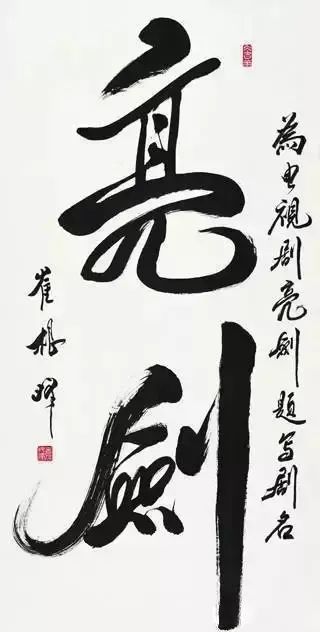 為电視剧亮劍題写剧名
亮劍
崔